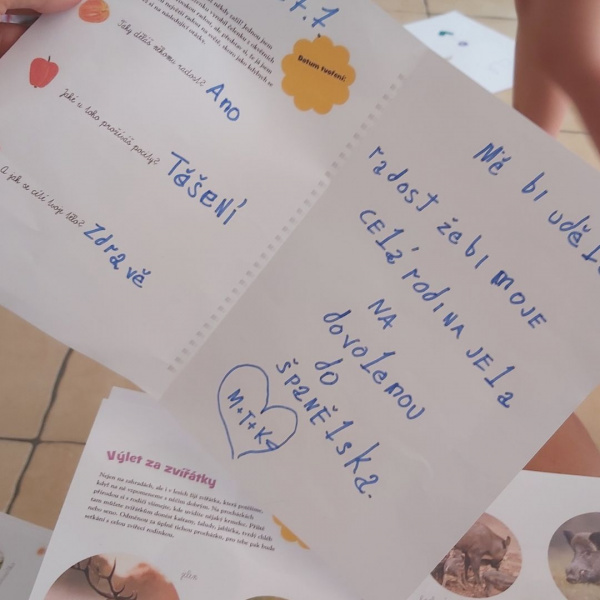 7.7.
Datum tvoření:
Kdy děláš někomu radost?
Ano
Jaké u toho prožíváš pocity?
Těšení
A jak se cítí tvoje tělo?
Zdravě
Mě bi uděl
radost žebi moje
celá rodina jela
na
dovolenou
do
španělska.
M+T+K
Výlet za zvířátky
Nejen na zahradách, ale i v lesích žijí zvířátka, která potěšíme,
když na ně vzpomeneme s něčím dobrým. Na procházkách
přírodou si s rodiči všímejte, kde uvidíte nějaký krmelec. Příště
tam můžete zvířátkům donést kaštany, žaludy, jablíčka, tvrdý chléb
nebo seno. Odměnou za úplně tichou procházku, pro vás pak bude
setkání s celou zvířecí rodinkou.